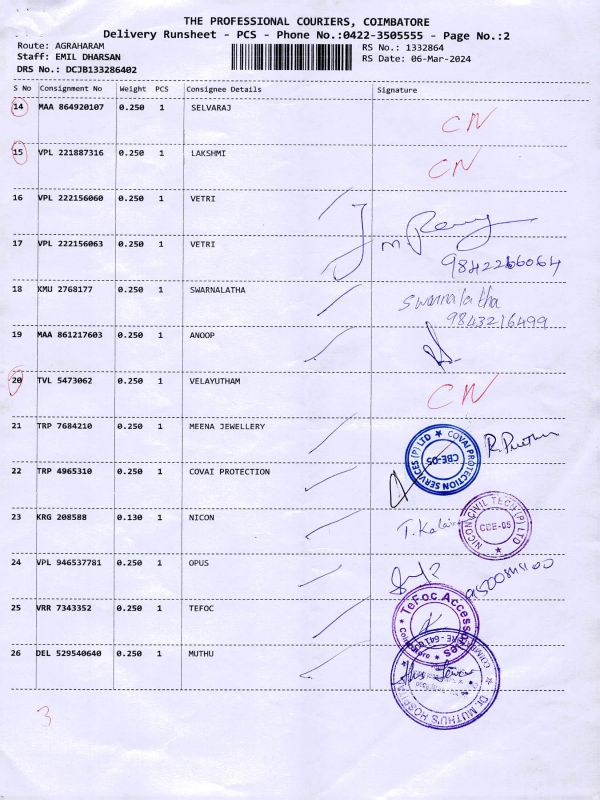 THE PROFESSIONAL COURIERS, COIMBATORE
Delivery Runsheet - PCS - Phone No.:0422-3505555 - Page No.:2
Route: AGRAHARAM RS No.: 1332864
Staff: EMIL DHARSAN RS Date: 06-Mar-2024
DRS No.: DCJB133286402
S No Consignment No Weight PCS Consignee Details Signature
14 MAA 864920107 0.250 1 SELVARAJ CN
15 VPL 221887316 0.250 1 LAKSHMI CN
16 VPL 222156060 0.250 1 VETRI
17 VPL 222156063 0.250 1 VETRI
9842266064
18 KMU 2768177 0.250 1 SWARNALATHA Swarnalatha
9843216499
19 MAA 861217603 0.250 1 ANOOP
20 TVL 5473062 0.250 1 VELAYUTHAM CN
21 TRP 7684210 0.250 1 MEENA JEWELLERY
COVAI PROTECTION SERVICES (P) LTD
CBE-05
22 TRP 4965310 0.250 1 COVAI PROTECTION
23 KRG 208588 0.130 1 NICON
NICON CIVIL TECH (P) LTD
CBE-05
24 VPL 946537781 0.250 1 OPUS
25 VRR 7343352 0.250 1 TEFOC
TeFoc Accessories
26 DEL 529540640 0.250 1 MUTHU
Dr. MUTHU'S HOSPITAL
3